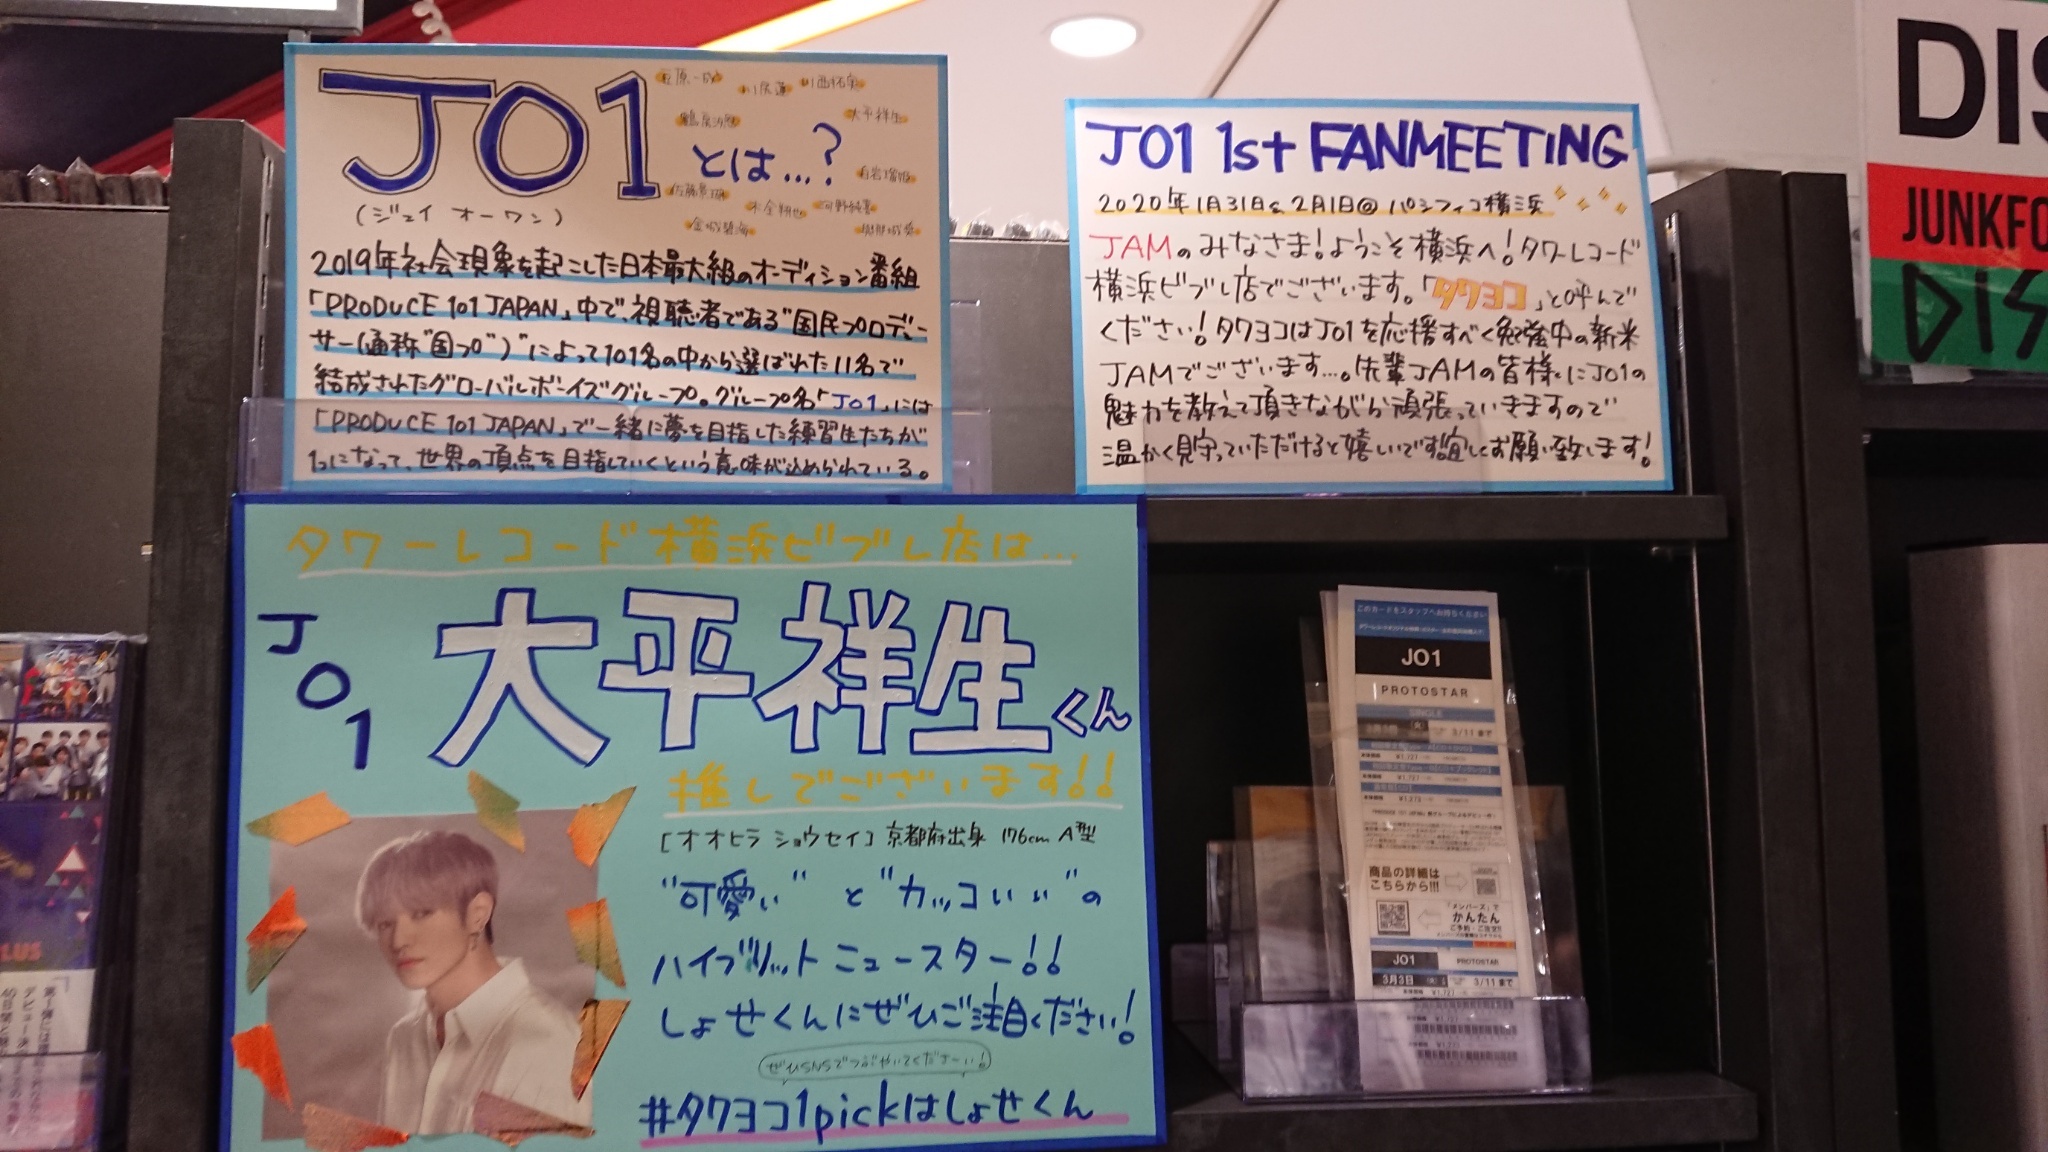 JO1
とは…?
(ジェイ オーワン)
川尻蓮
川西拓実
大平祥生
白岩瑠姫
佐藤景瑚
木全翔也
河野純喜
金城碧海
與那城奨
2019年社会現象を起こした日本最大級のオーディション番組
「PRODUCE 101 JAPAN」中で、視聴者である"国民プロデュー
サー(通称"国プ")"によって101名の中から選ばれた11名で
結成されたグローバルボーイズグループ。グループ名「JO1」には
「PRODUCE 101 JAPAN」で一緒に夢を目指した練習生たちが
1つになって、世界の頂点を目指していくという意味が込められている。
JO1 1st FANMEETING
2020年1月31日&2月1日@パシフィコ横浜
JAMのみなさま!ようこそ横浜へ!タワーレコード
横浜ビブレ店でございます。「タワヨコ」と呼んで
ください!タワヨコはJO1を応援すべく勉強中の新米
JAMでございます…。先輩JAMの皆様にJO1の
魅力を教えて頂きながら頑張っていきますので
温かく見守っていただけると嬉しいです宜しくお願い致します!
タワーレコード横浜ビブレ店は…
JO1
大平祥生くん
推しでございます!!
[オオヒラ ショウセイ] 京都府出身 176cm A型
"可愛い"と"カッコいい"の
ハイブリットニュースター!!
しょせくんにぜひご注目ください!
ぜひSNSでつぶやいてくださーい!
#タワヨコ1pickはしょせくん
このカードをスタッフへお持ちください
JO1
PROTOSTAR
SINGLE
3/11まで
商品の詳細は
こちらから!!!
「メンバーズ」で
かんたん
ご予約・ご注文!!
JO1
PROTOSTAR
3月3日
3/11まで
DIS
JUNKFO
DIS
LUS